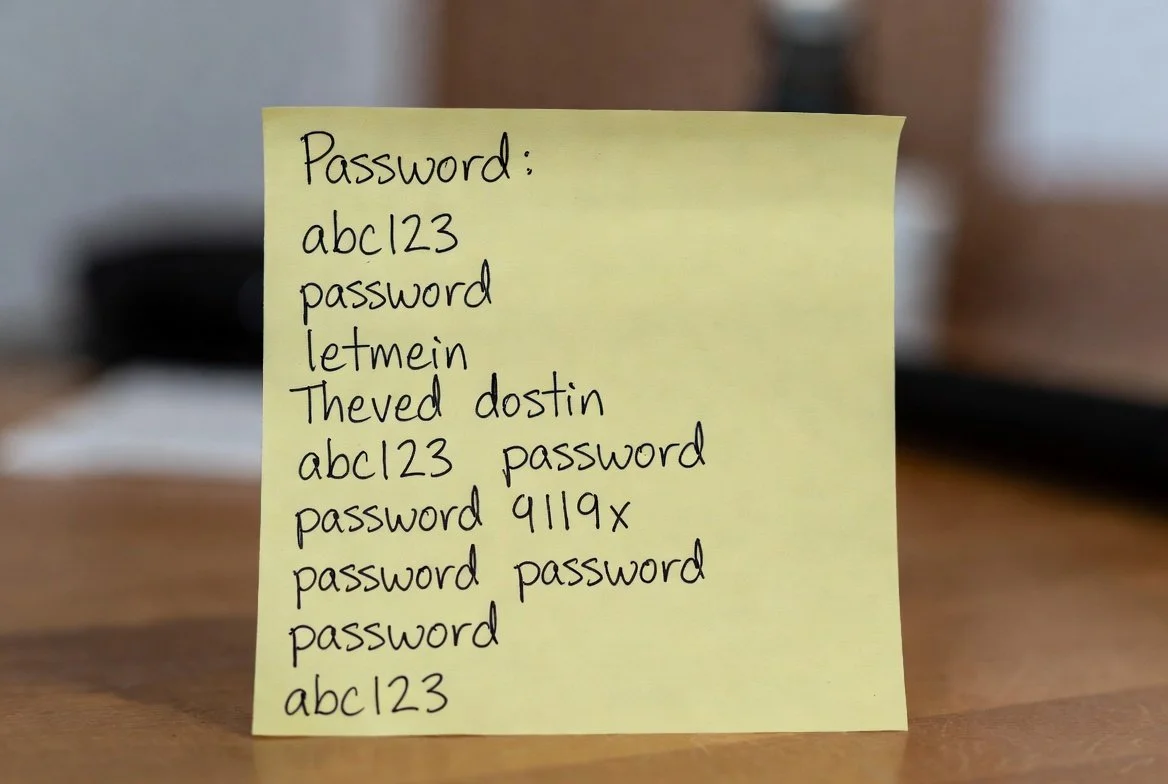 Password:
abc123
password
letmein
Theved dostin
abc123 password
password 9119x
password password
password
abc123